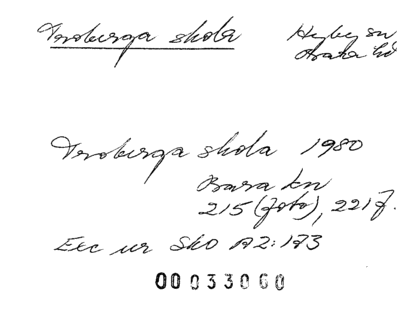 Torberga skola Hyby sn
Bara hd
Torberga skola 1980
Bara kn
215 (foto), 221 f.
Exc ur Sko A2:173
00033060